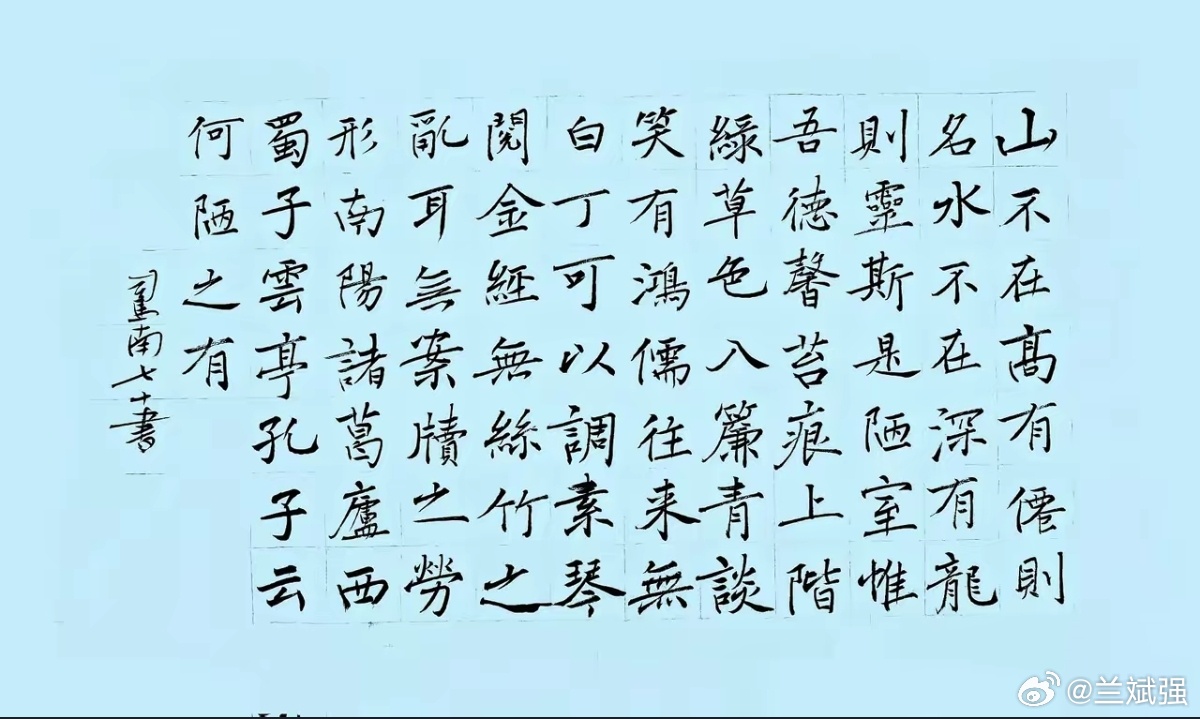 山不在髙有僊則
名水不在深有龍
則靈斯是陋室惟
吾德馨苔痕上階
綠草色入簾青談
笑有鴻儒往来無
白丁可以調素琴
閱金經無絲竹之
亂耳無案牘之勞
形南陽諸葛廬西
蜀子雲亭孔子云
何陋之有
司馬南七十書
@兰斌强